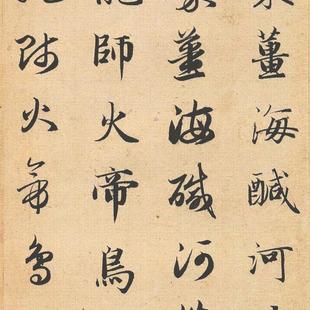 薑海鹹河
薑海鹹河
龍師火帝鳥
師火帝鳥